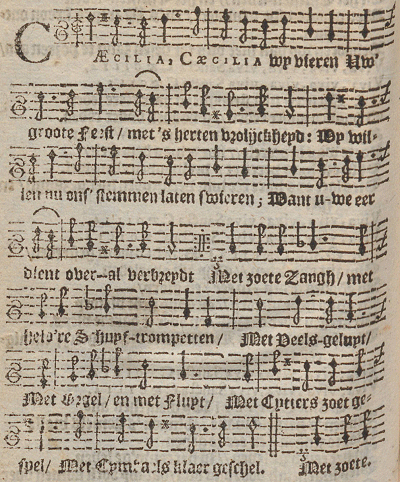 CÆCILIA, CÆCILIA wy vieren Uw'
groote Feest / met 's herten vrolijckheyd: Wy wil-
len nu ons' stemmen laten swieren; Want u-we eer
dient over-al verbreydt Met zoete Zangh / met
held're Schuyf-trompetten / Met Veels-geluyt /
Met Orgel / en met Fluyt / Met Cyters zoet ge-
spel / Met Cymbaels klaer geschel. Met zoete.